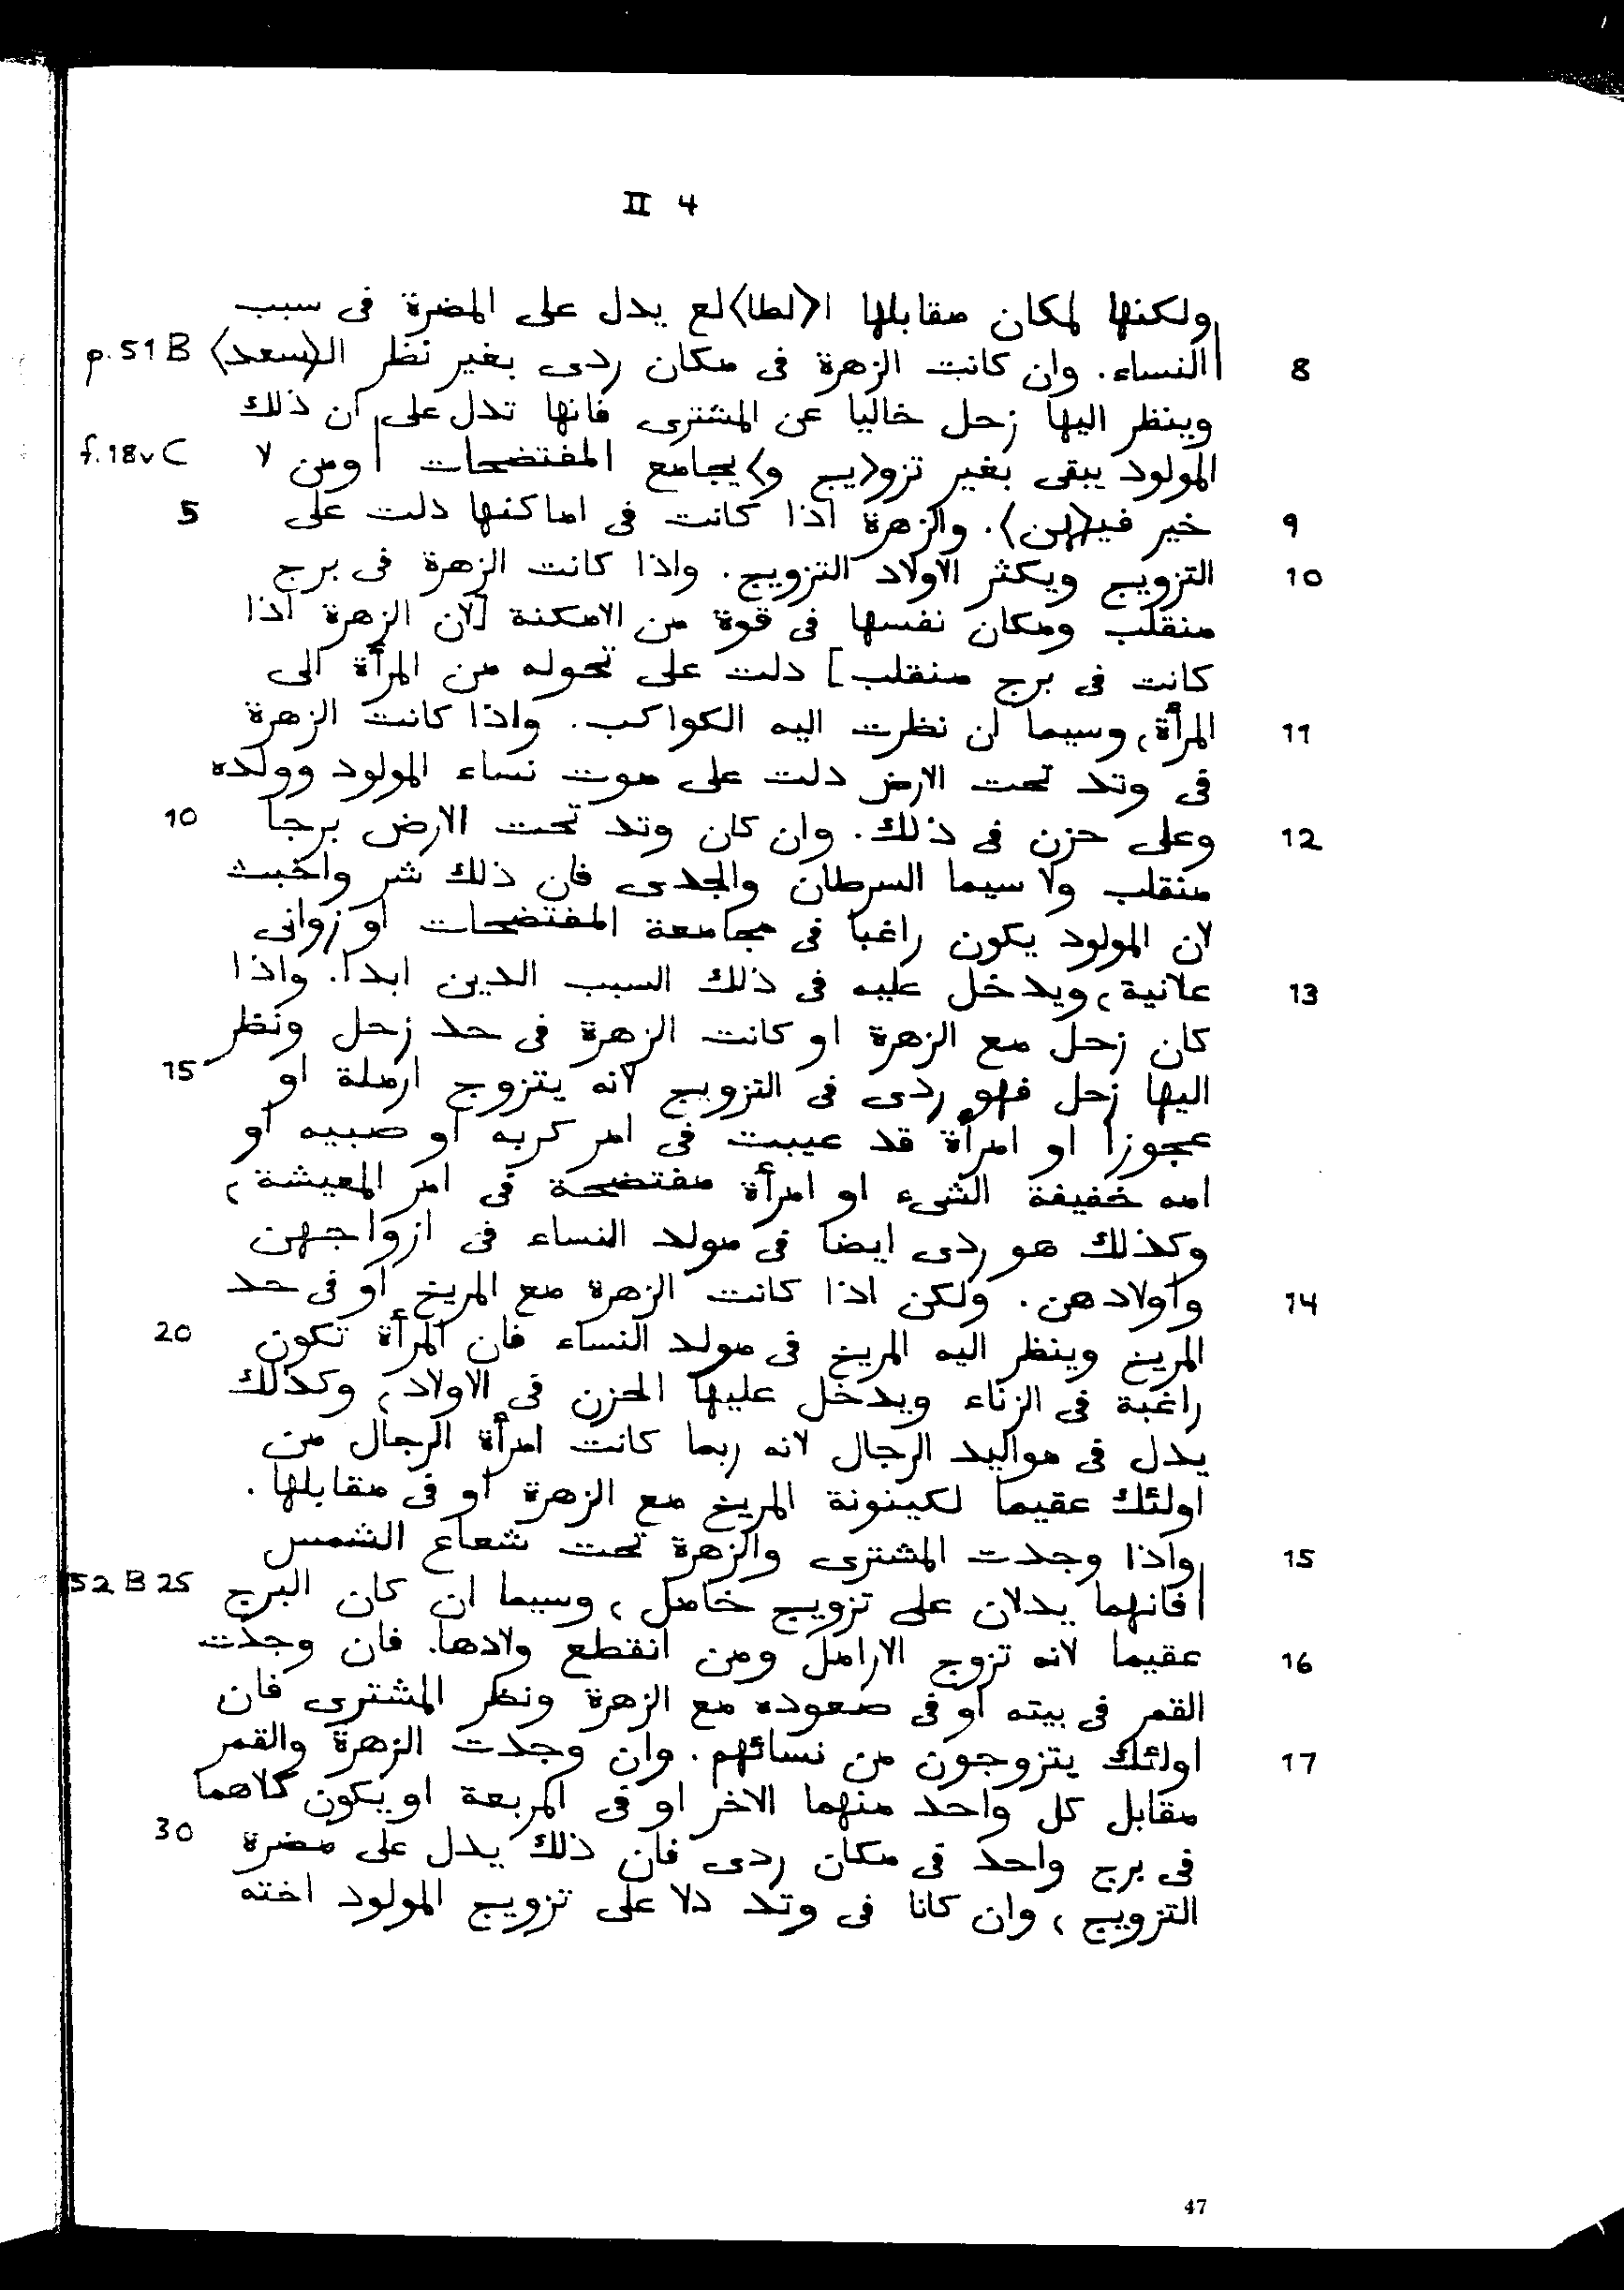 II 4
ولكنها لمكان مقابلها ا〈لطا〉لع يدل على المضرة فى سبب
8 |النساء. وان كانت الزهرة فى مكان ردى بغير نظر ال〈سعد〉 p.51 B
وينظر اليها زحل خاليا عن المشترى فانها تدل على ان ذلك
المولود يبقى بغير تزو〈يج و〉يجامع المفتضحات | ومن لا f.18v C
9 خير فيـ〈هن〉. والزهرة اذا كانت فى اماكنها دلت على 5
10 التزويج ويكثر الاولاد التزويج. واذا كانت الزهرة فى برج
منقلب ومكان نفسها فى قوة من الامكنة [لان الزهرة اذا
كانت فى برج منقلب] دلت على تحوله من المرأة الى
11 المرأة، وسيما ان نظرت اليه الكواكب. واذا كانت الزهرة
فى وتد تحت الارض دلت على موت نساء المولود وولده
12 وعلى حزن فى ذلك. وان كان وتد تحت الارض برجا 10
منقلب ولا سيما السرطان والجدى فان ذلك شر واخبث
لان المولود يكون راغبا فى مجامعة المفتضحات او زوانى
13 علانية، ويدخل عليه فى ذلك السبب الدين ابدا. واذا
كان زحل مع الزهرة او كانت الزهرة فى حد زحل ونظر
اليها زحل فهو ردى فى التزويج لانه يتزوج ارملة او 15
عجوزا او امرأة قد عيبت فى امر كربه او صبيه او
امه خفيفة الشىء او امرأة مفتضحة فى امر المعيشة،
وكذلك هو ردى ايضا فى مولد النساء فى ازواجهن
14 واولادهن. ولكن اذا كانت الزهرة مع المريخ او فى حد
المريخ وينظر اليه المريخ فى مولد النساء فان المرأة تكون 20
راغبة فى الزناء ويدخل عليها الحزن فى الاولاد، وكذلك
يدل فى مواليد الرجال لانه ربما كانت امرأة الرجال من
اولئك عقيما لكينونة المريخ مع الزهرة او فى مقابلها.
15 واذا وجدت المشترى والزهرة تحت شعاع الشمس
|فانهما يدلان على تزويج خامل، وسيما ان كان البرج 52 B 25
16 عقيما لانه تزوج الارامل ومن انقطع ولادها. فان وجدت
القمر فى بيته او فى صعوده مع الزهرة ونظر المشترى فان
17 اولئك يتزوجون من نسائهم. وان وجدت الزهرة والقمر
مقابل كل واحد منهما الاخر او فى المربعة او يكون كلاهما
فى برج واحد فى مكان ردى فان ذلك يدل على مضرة 30
التزويج، وان كانا فى وتد دلا على تزويج المولود اخته
47